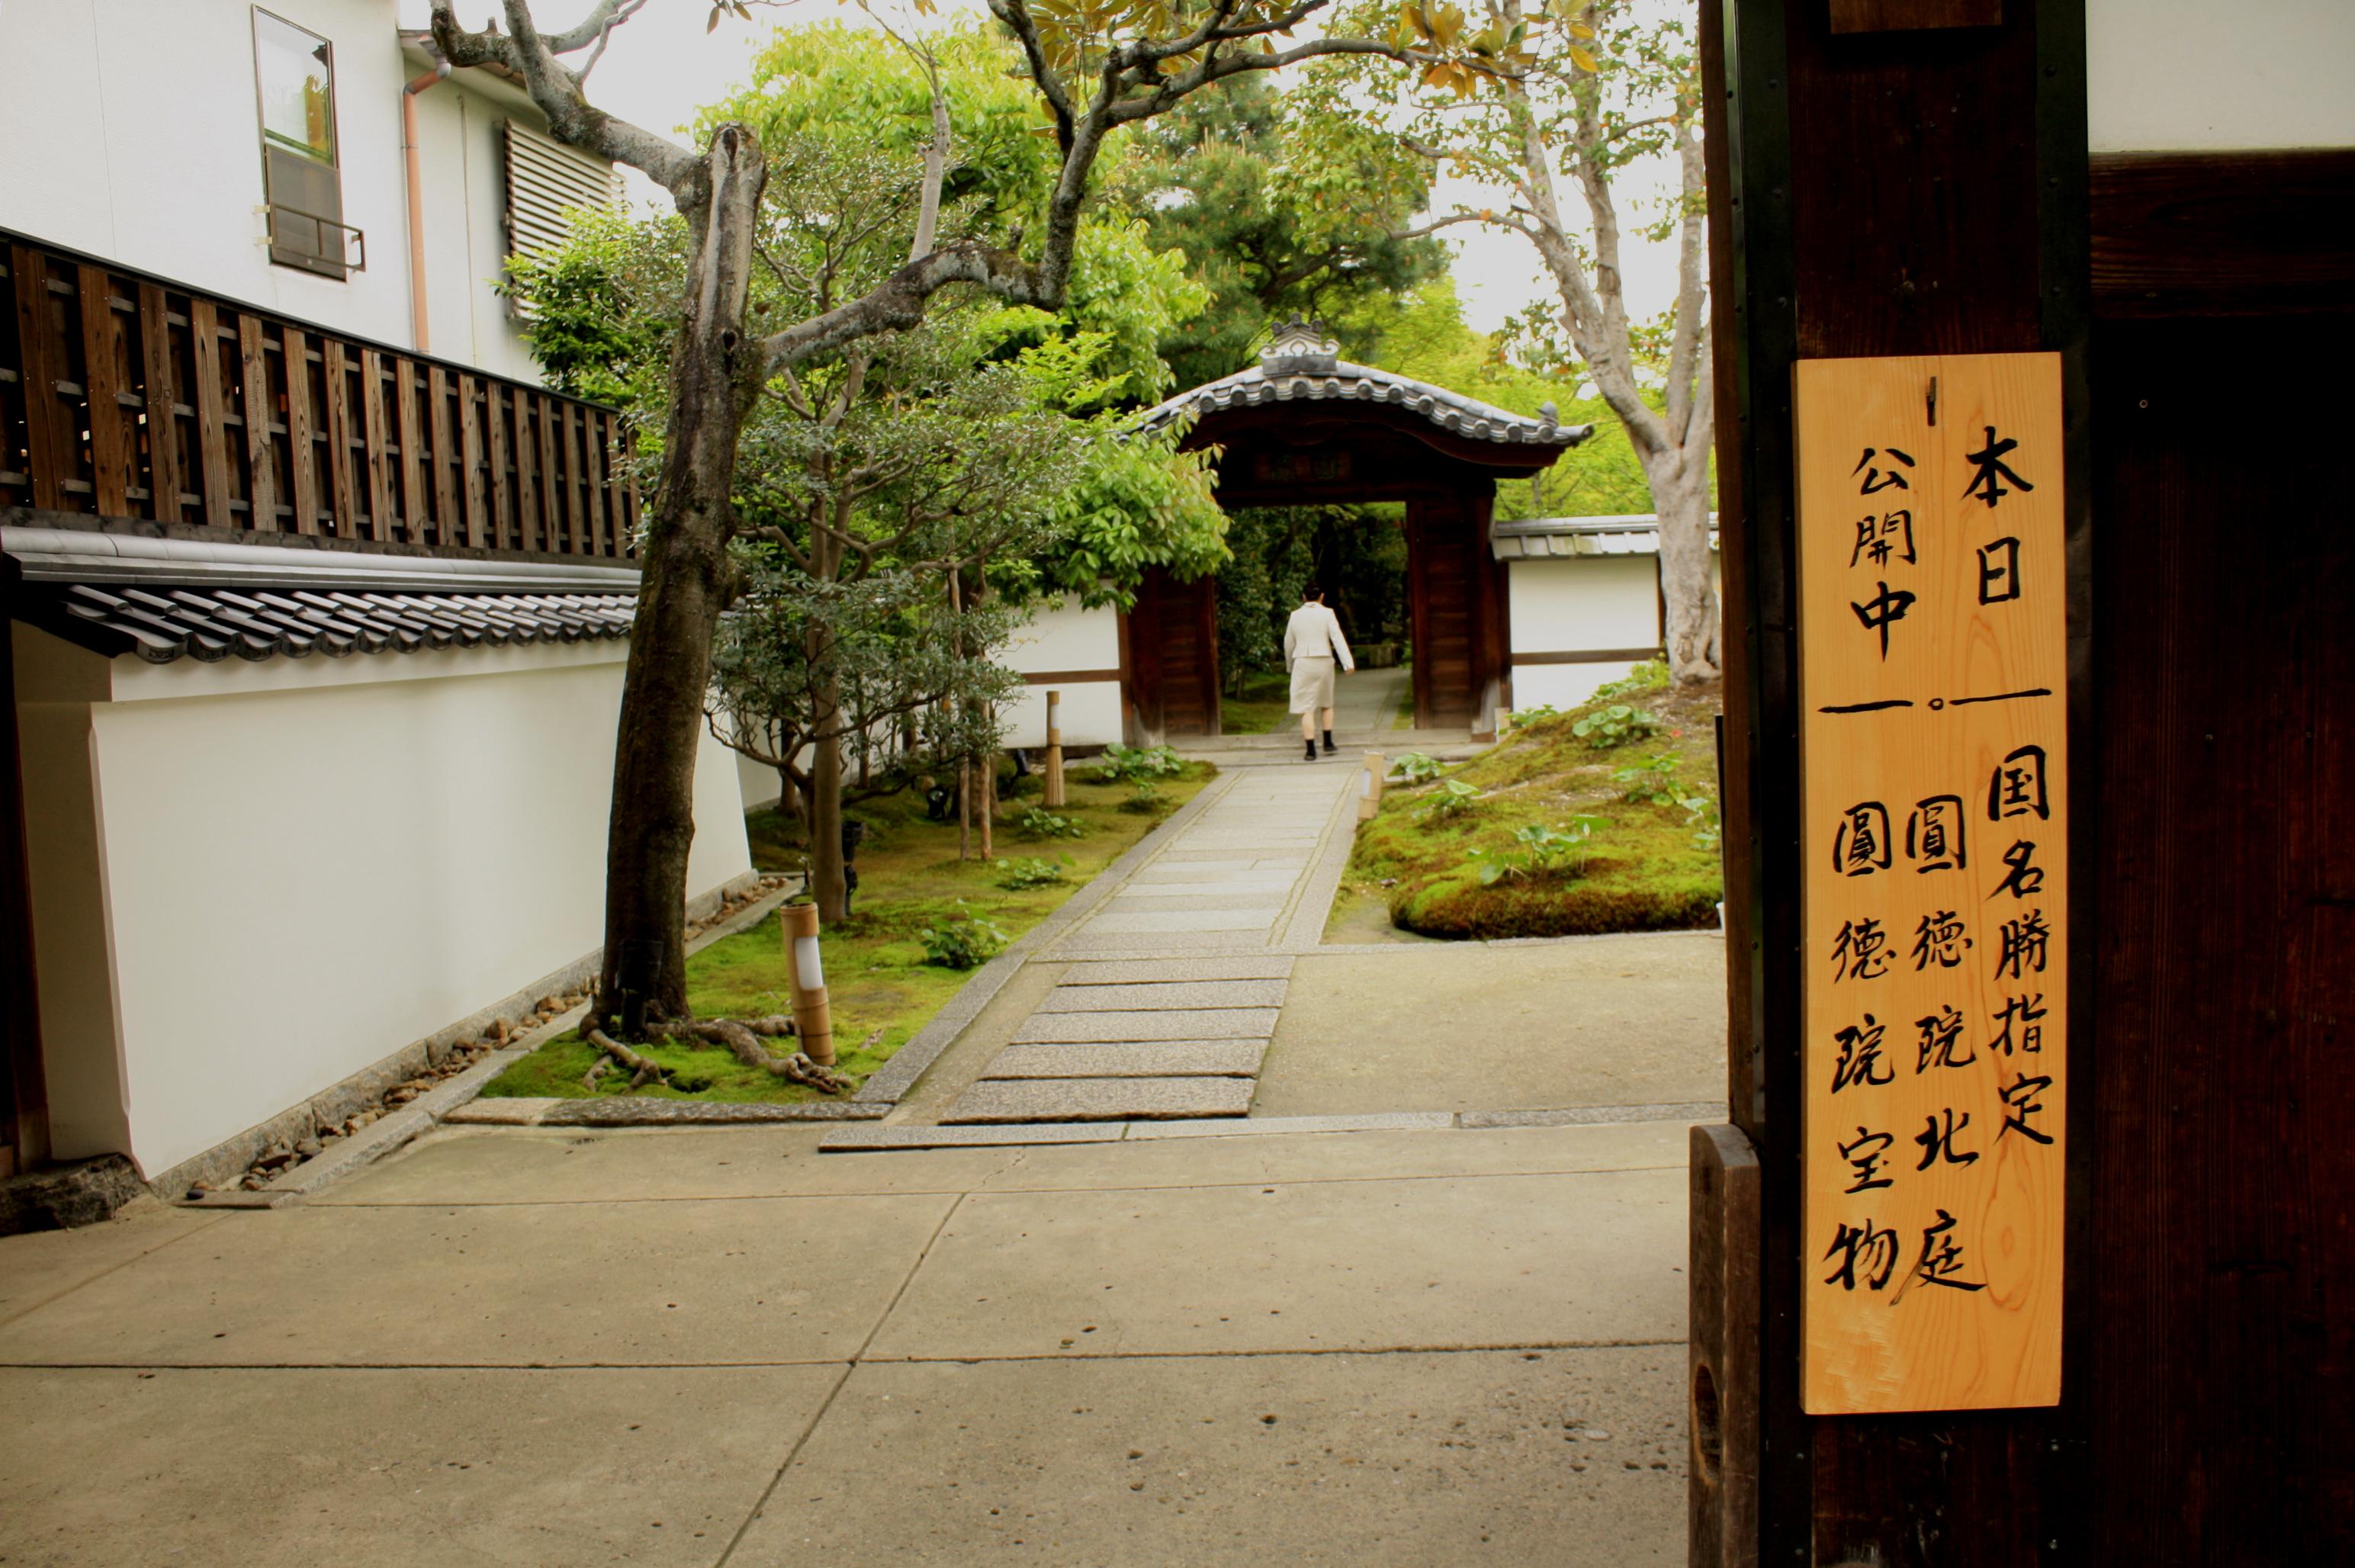 本日
公開中
一。一
国名勝指定
圓德院北庭
圓德院宝物